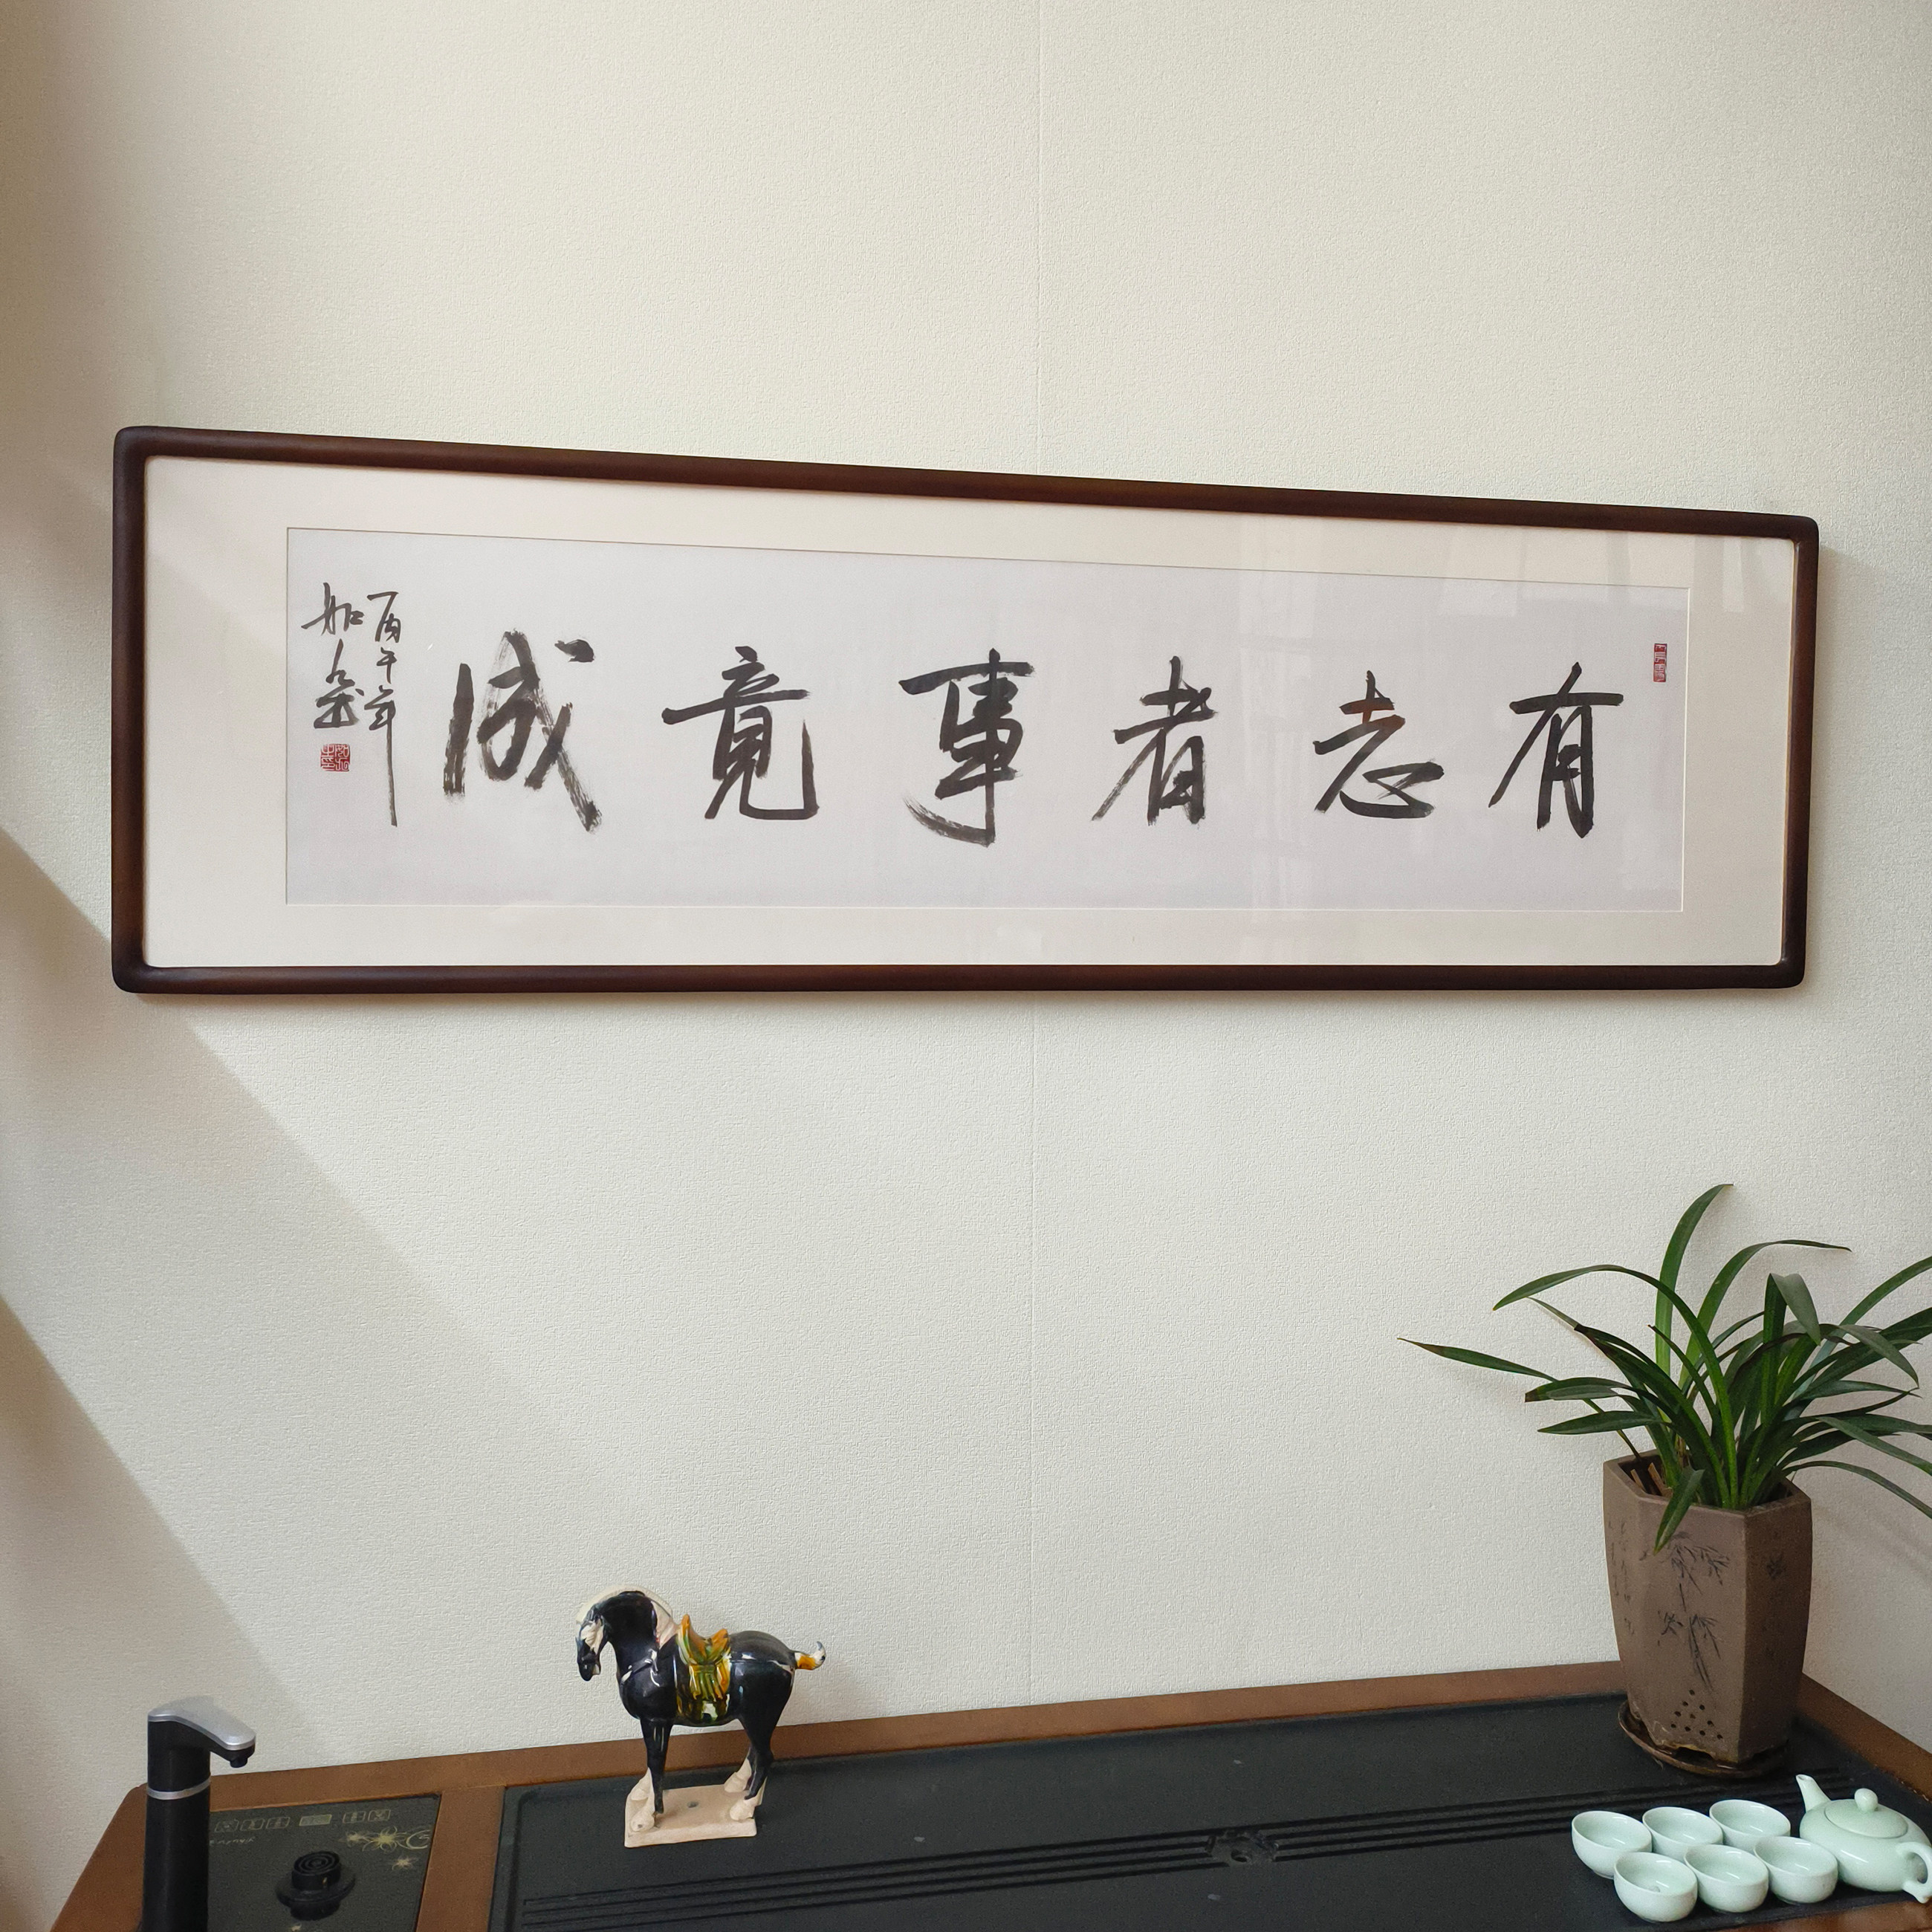 有志者事竟成
丙午年